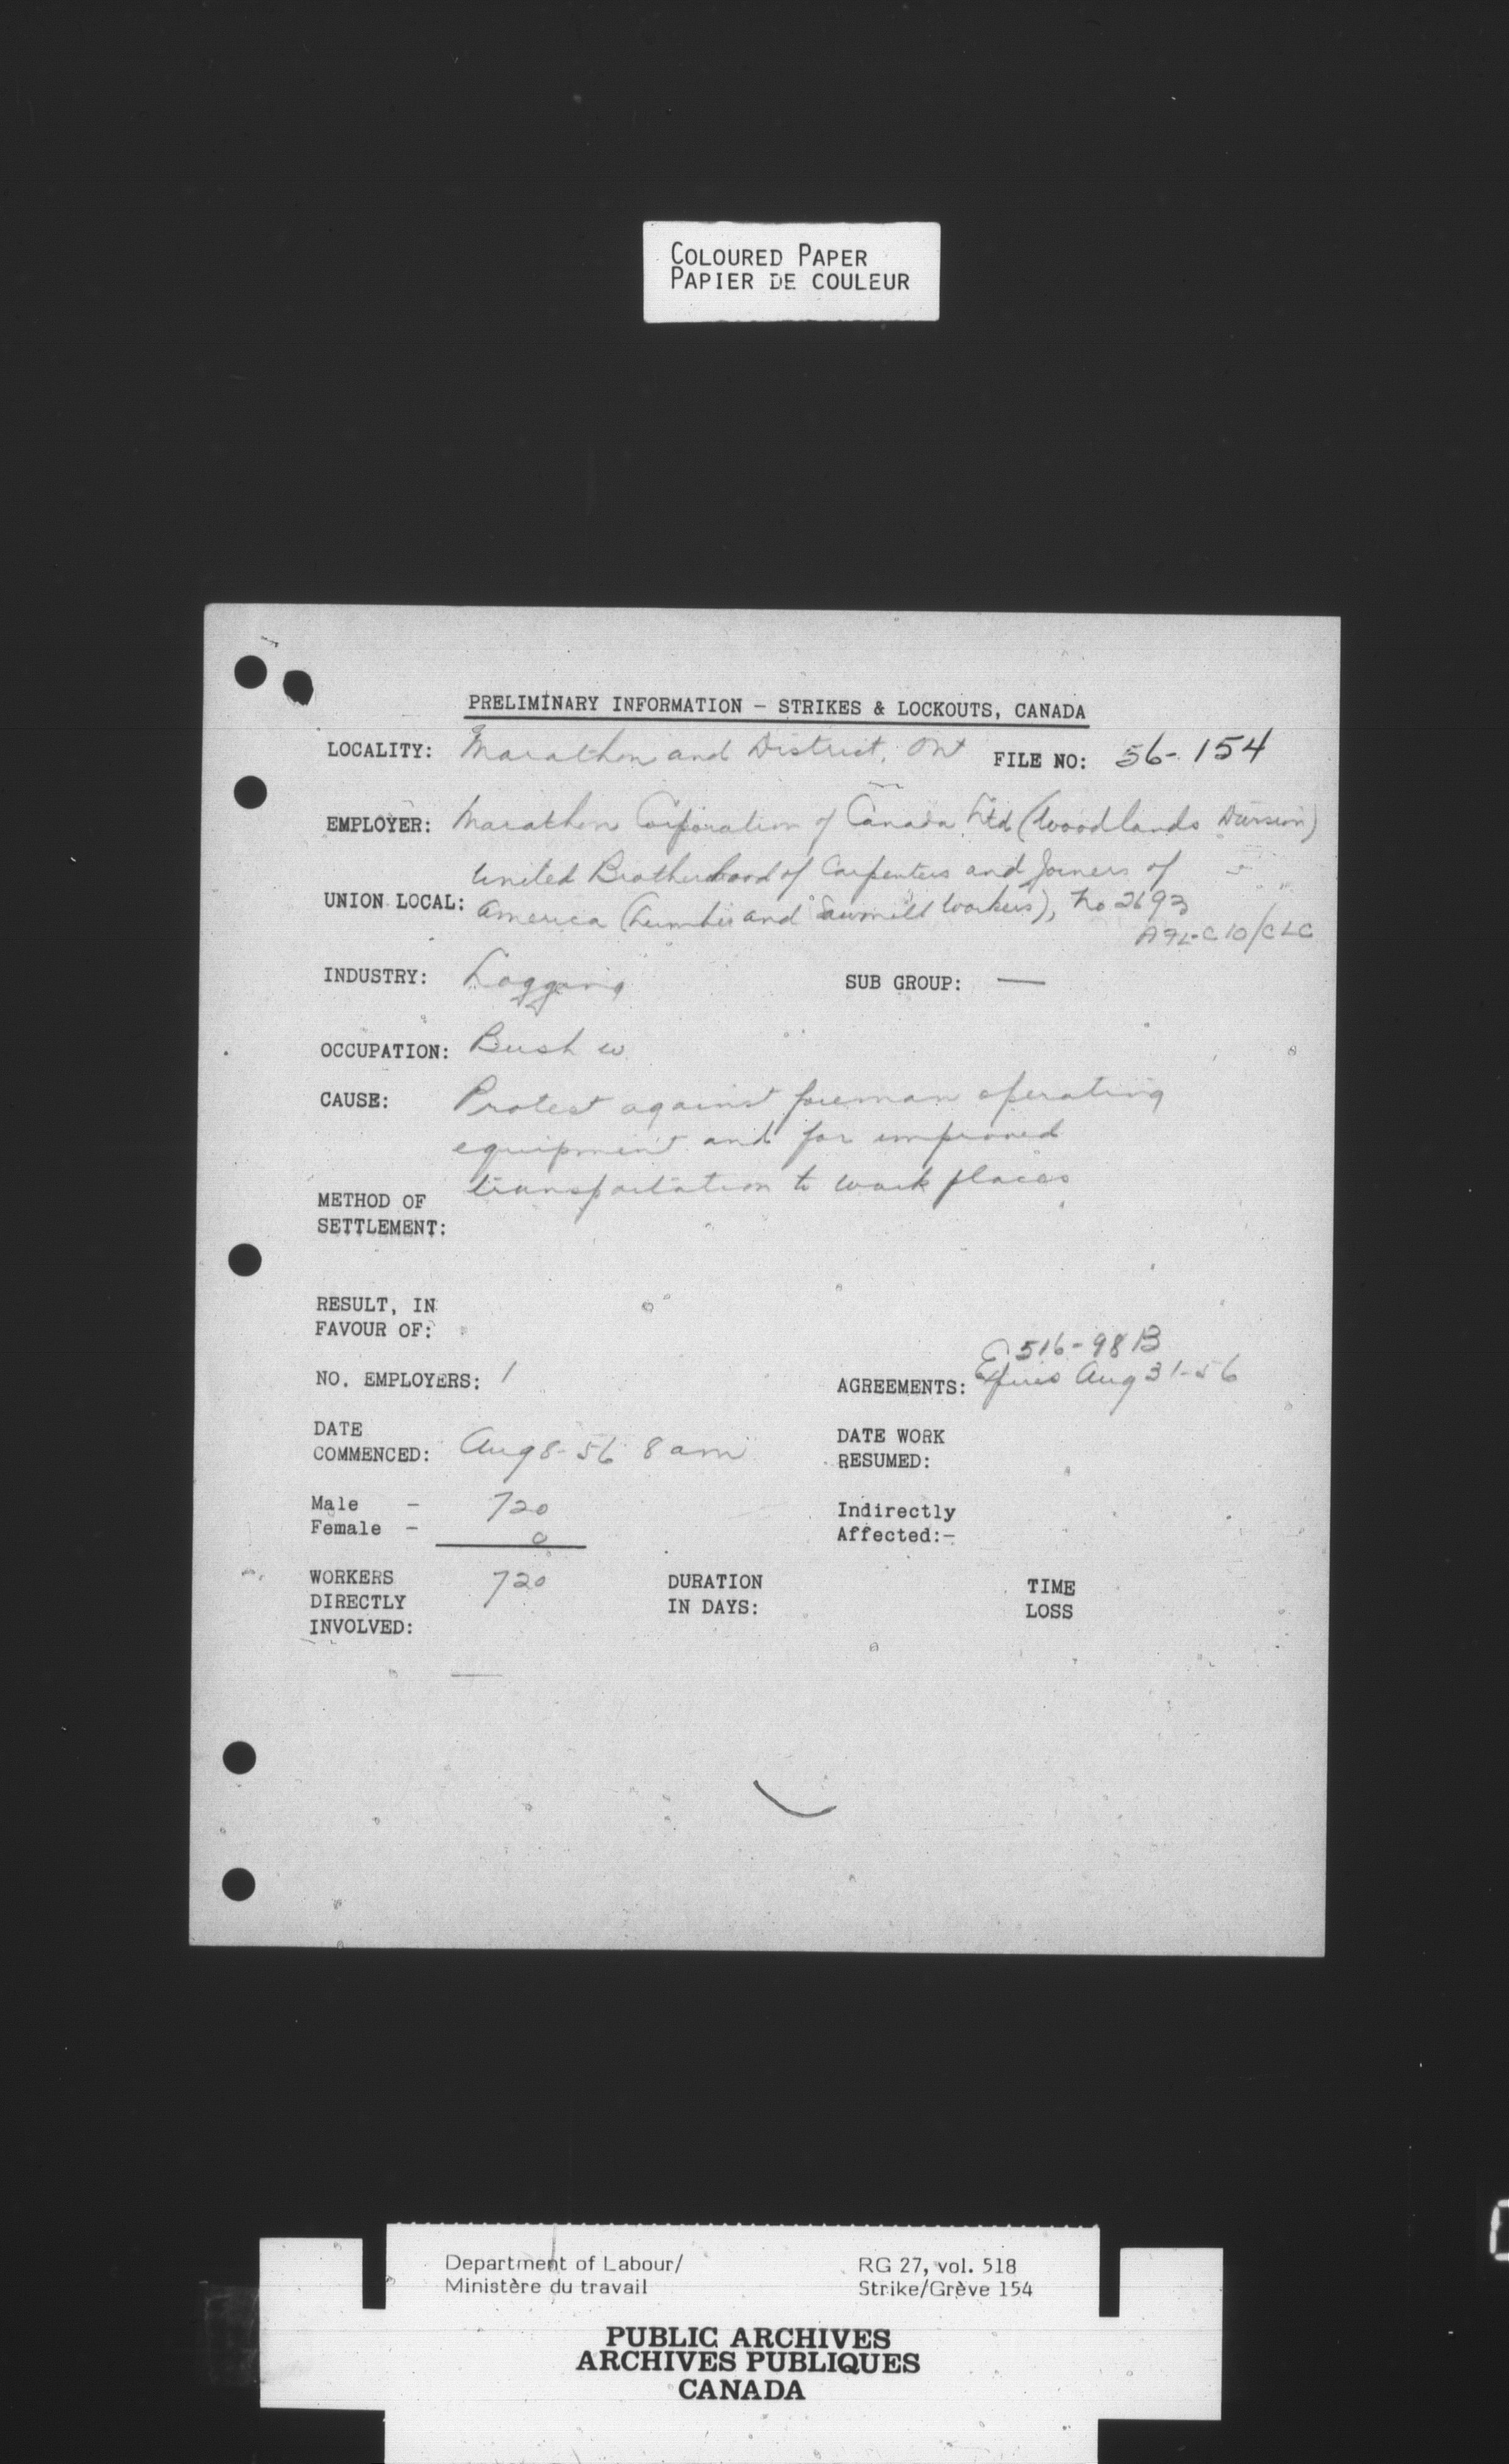 COLOURED PAPER
PAPIER DE COULEUR
PRELIMINARY INFORMATION - STRIKES & LOCKOUTS, CANADA
LOCALITY: Marathon and District, Ont FILE NO: 56-154
EMPLOYER: Marathon Corporation of Canada Ltd (Woodlands Division)
United Brotherhood of Carpenters and Joiners of
UNION LOCAL: America (Lumber and Sawmill Workers), No 2693
AFL-CIO/CLC
INDUSTRY: Logging SUB GROUP: —
OCCUPATION: Bush w
CAUSE: Protest against foreman operating
equipment and for improved
transportation to work places
METHOD OF
SETTLEMENT:
RESULT, IN
FAVOUR OF:
516-98B
NO. EMPLOYERS: 1 AGREEMENTS: Expires Aug 31-56
DATE
COMMENCED: Aug 8-56 8 am
DATE WORK
RESUMED:
Male - 720
Female - 0
Indirectly
Affected:-
WORKERS
DIRECTLY
INVOLVED: 720
DURATION
IN DAYS:
TIME
LOSS
Department of Labour/
Ministère du travail
RG 27, vol. 518
Strike/Grève 154
PUBLIC ARCHIVES
ARCHIVES PUBLIQUES
CANADA